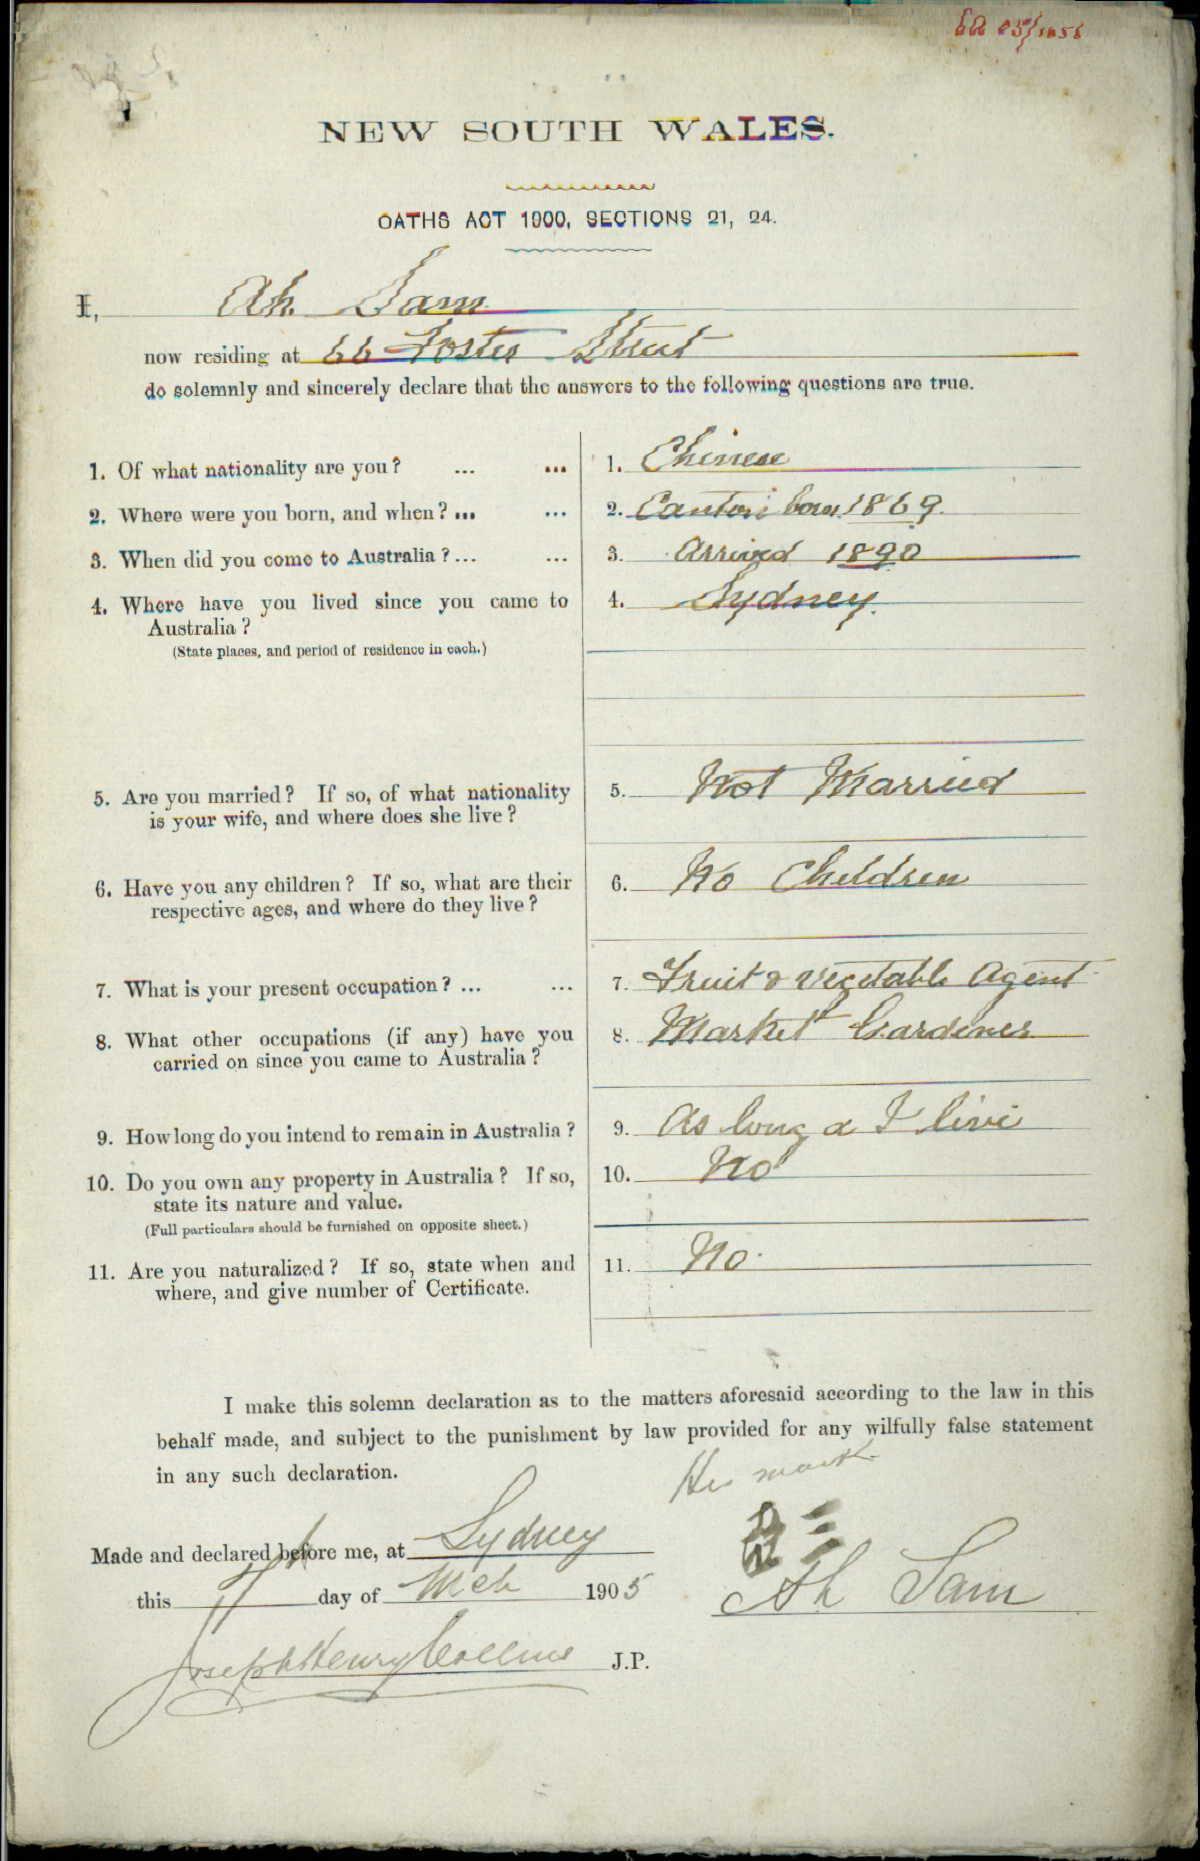 NEW SOUTH WALES.
OATHS ACT 1900, SECTIONS 21, 24.
I, Ah Sam
now residing at 66 Foster Street
do solemnly and sincerely declare that the answers to the following questions are true.
1. Of what nationality are you? ... ... 1. Chinese
2. Where were you born, and when? ... ... 2. Canton born 1869.
3. When did you come to Australia? ... ... 3. Arrived 1890
4. Where have you lived since you came to 4. Sydney.
Australia?
(State places, and period of residence in each.)
5. Are you married? If so, of what nationality 5. Not Married
is your wife, and where does she live?
6. Have you any children? If so, what are their 6. No Children
respective ages, and where do they live?
7. What is your present occupation? ... ... 7. Fruit & Vegetable Agent
8. What other occupations (if any) have you 8. Market Gardener
carried on since you came to Australia?
9. How long do you intend to remain in Australia? 9. As long as I live
10. Do you own any property in Australia? If so, 10. No
state its nature and value.
(Full particulars should be furnished on opposite sheet.)
11. Are you naturalized? If so, state when and 11. No.
where, and give number of Certificate.
I make this solemn declaration as to the matters aforesaid according to the law in this
behalf made, and subject to the punishment by law provided for any wilfully false statement
in any such declaration.
His mark
Made and declared before me, at Sydney
三
this day of Mch 1905 Ah Sam
Joseph Henry Collins J.P.